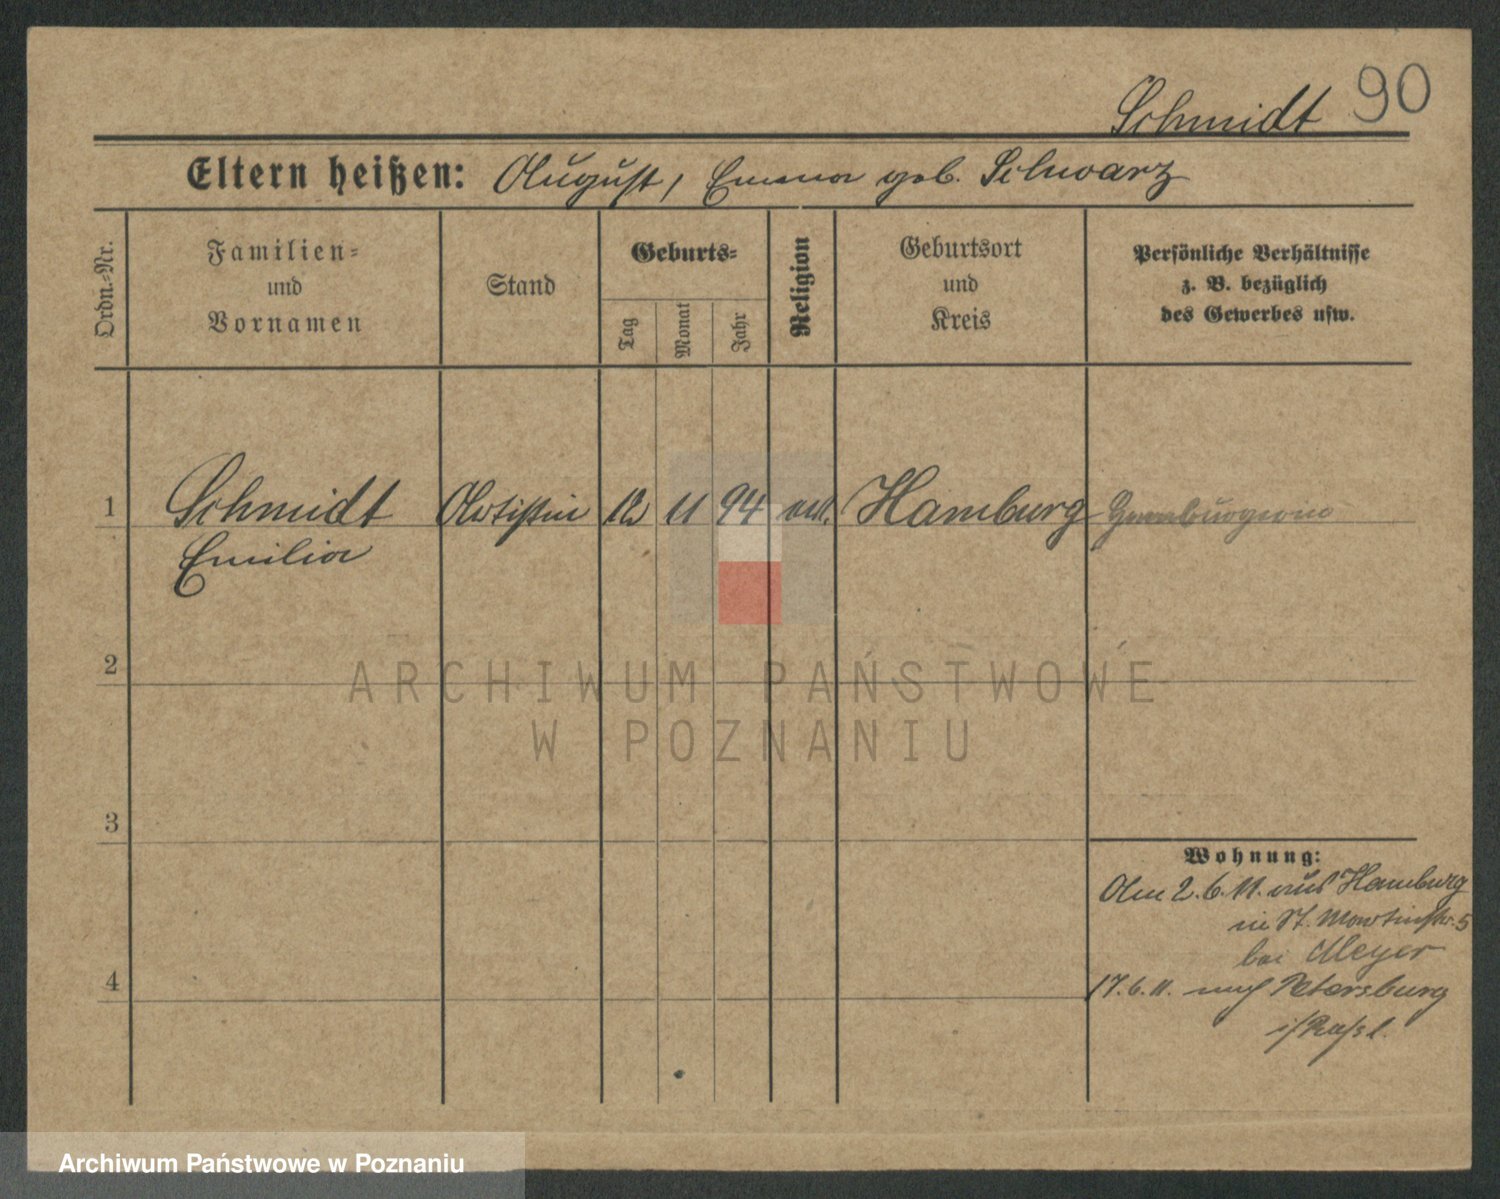 Schmidt 90
Eltern heißen: August, Emma geb. Schwarz
Ordn.-Nr.
Familien-
und
Vornamen
Stand
Geburts-
Tag
Monat
Jahr
Religion
Geburtsort
und
Kreis
Persönliche Verhältnisse
z. B. bezüglich
des Gewerbes usw.
1 Schmidt Artistin 12 11 94 Hamburg Hamburgerin
Emilia
2
ARCHIWUM PAŃSTWOWE
W POZNANIU
3
Wohnung:
Am 2.6.11. aus Hamburg
in St. Martinstr. 5
bei Meyer
4
17.6.11. nach Petersburg
i/Rußl.
Archiwum Państwowe w Poznaniu